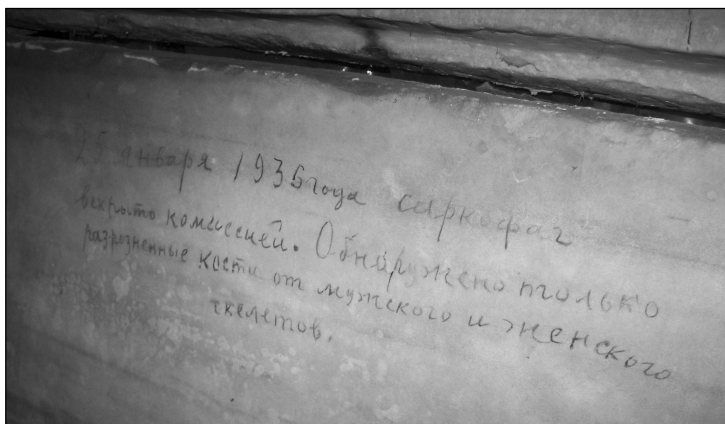 25 января 1936 года саркофаг
вскрыто комиссией. Обнаружено только
разрозненные кости от мужского и женского
скелетов.